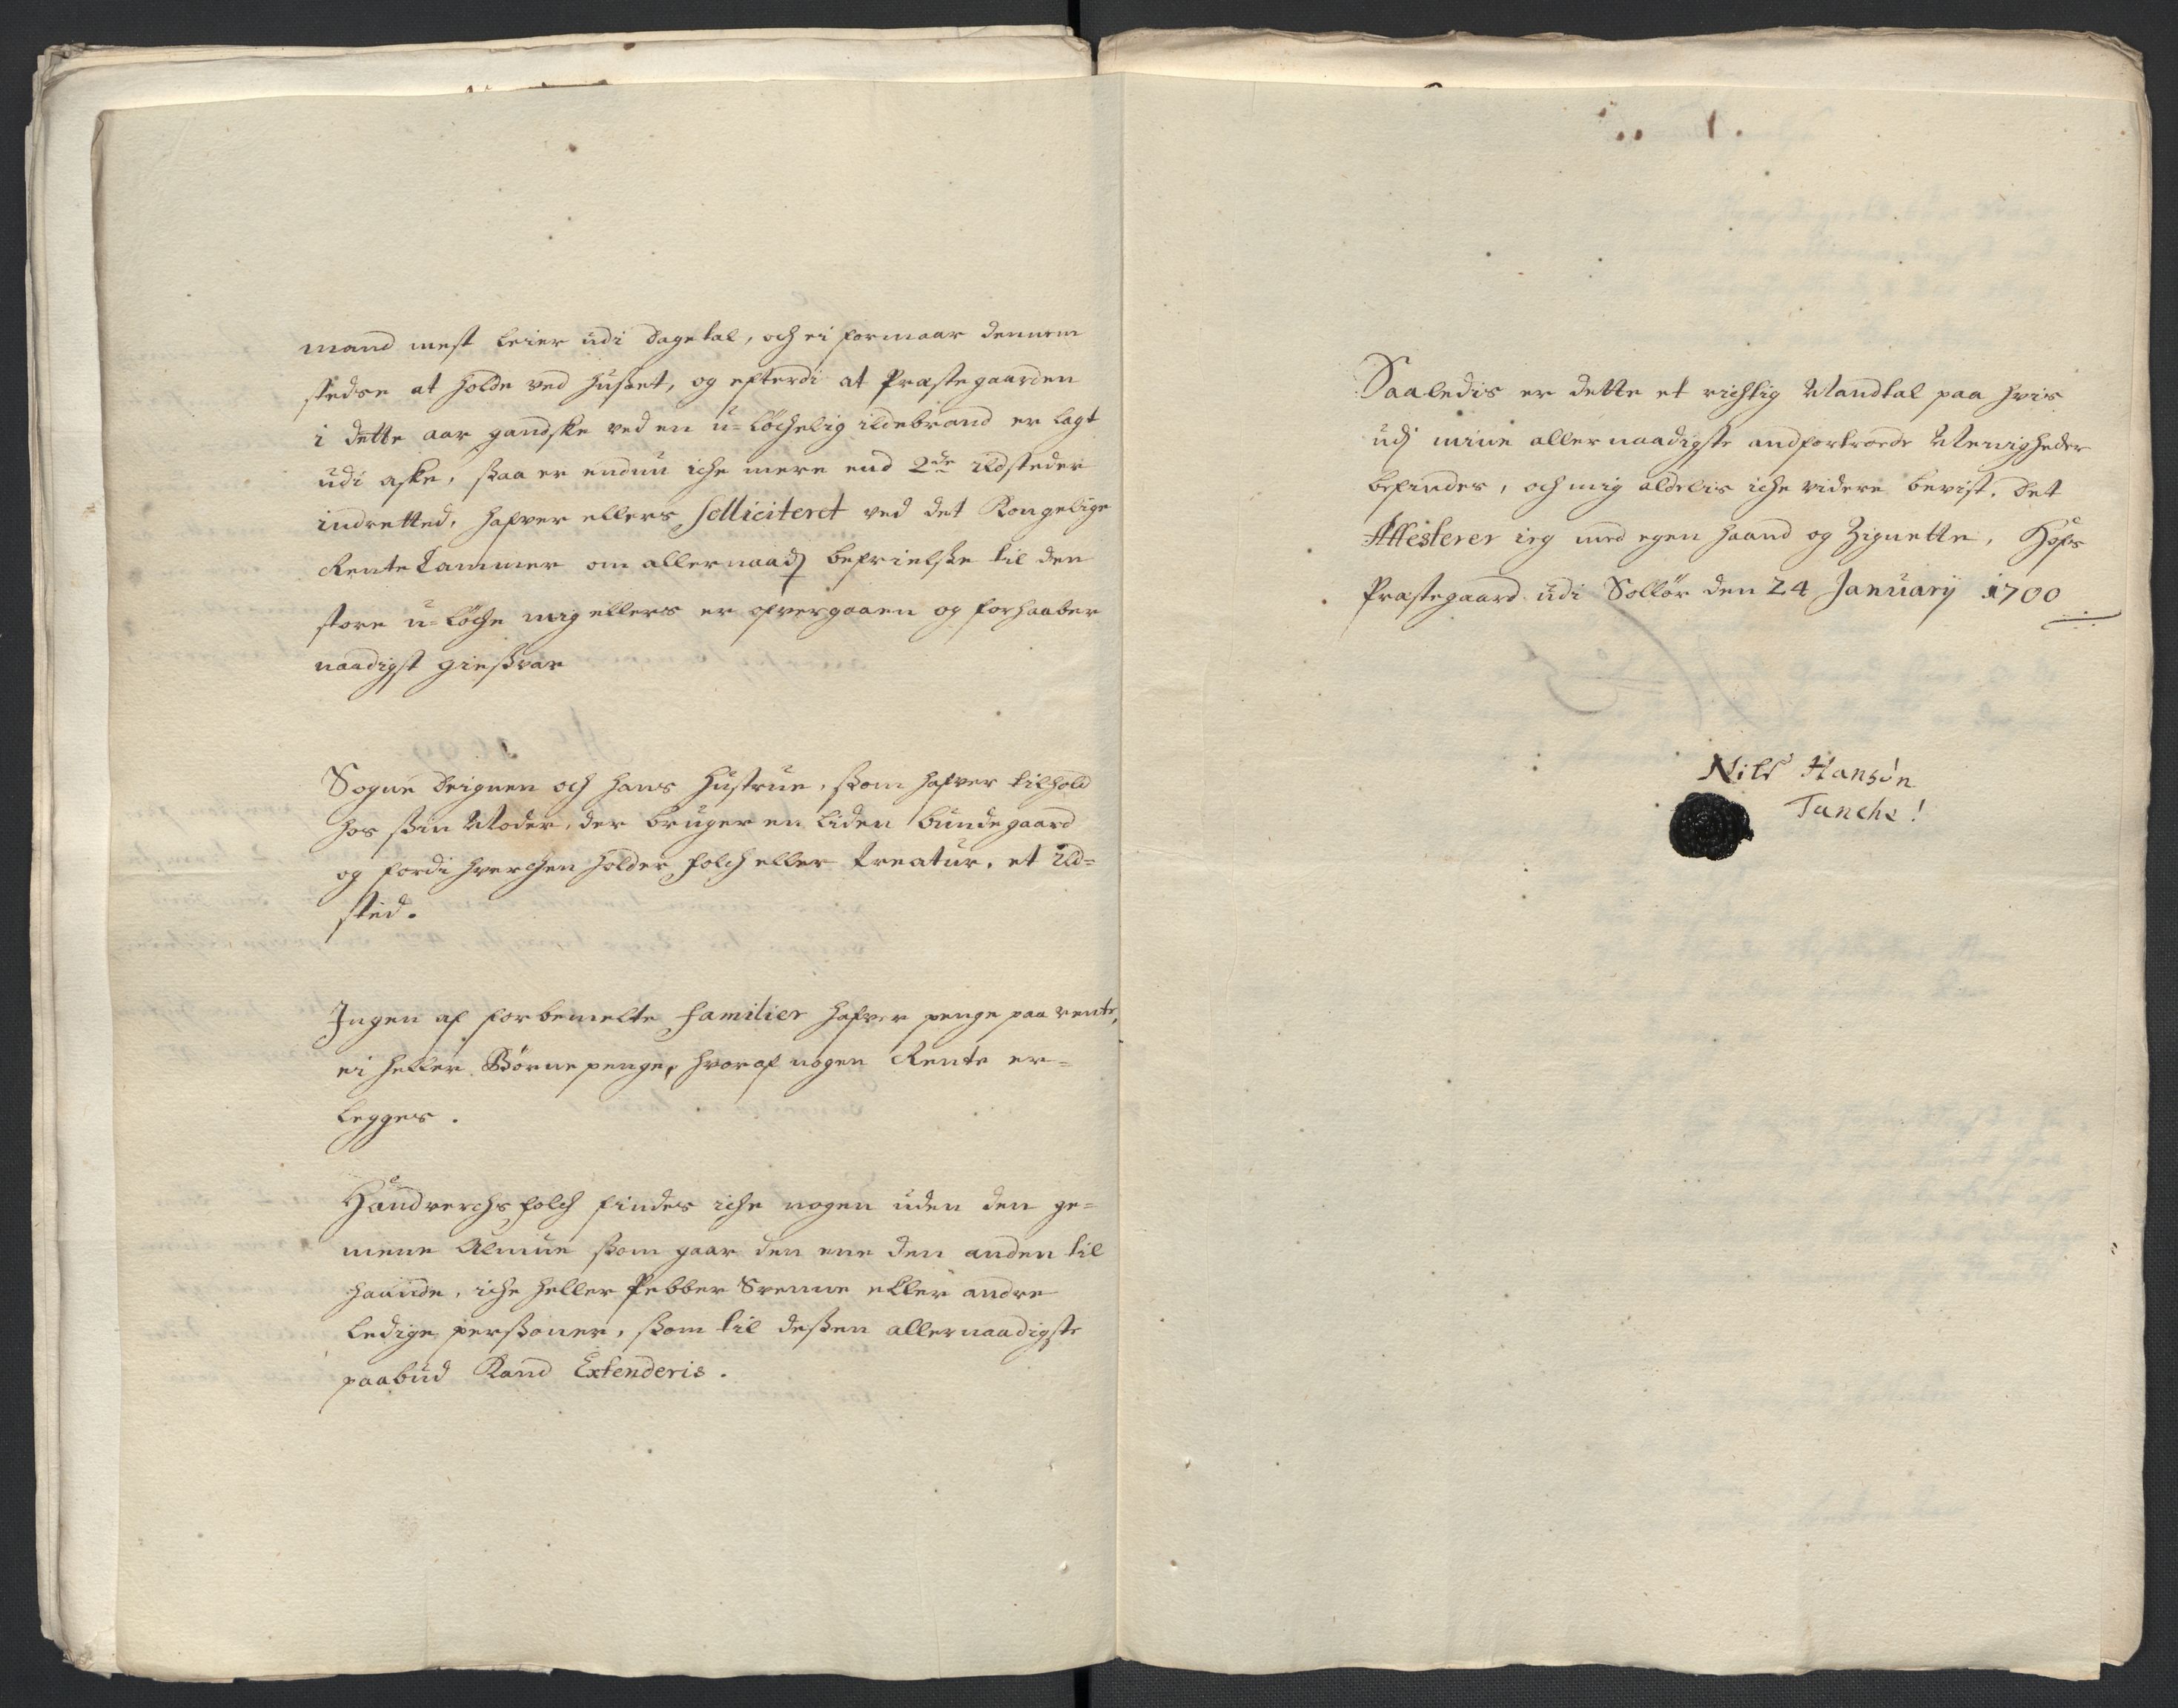 mand mest leier udi dagetal, och ei formaar dennem
stedse at holde ved hußet, og efterdi at Præstegaarden
i dette aar gandske ved en u-löchelig ildebrand er lagt
udi aske, ßaa er endnu iche mere end 2de ildsteder
indretted, hafver ellers solliciteret ved det Kongelige
Rente Cammer om allernaadt befrielße til den
store u-löche mig ellers er ofvergaaen og forhaaber
naadigst gienßvar
Sogne Deignen och hans Hustrue, ßom hafver tilhold
hos ßin Moder, der bruger en liden bundegaard
og fordi hverchen holder folch eller Creatur, et ild-
sted.
Ingen af forbemelte familier hafver penge paa rente,
ei heller Börnepenge, hvoraf nogen Rente er-
legges.
Handverchs folch findes iche nogen uden den ge-
mene Almue ßom gaar den ene den anden til
haande, iche heller Pebber Svenne eller andre
ledige perßoner, ßom til deßen allernaadigste
paabud Kand Extenderis.
Saaledis er dette et richtig Mandtal paa hvis
udj mine allernaadigste andfortroede Menigheder
befindes, och mig aldelis iche videre bevist. Det
Attesterer ieg med egen haand og Zignette, Hofs
Præstegaard udi Sollör den 24 Januarij 1700
Nils Hansön
Tanche!